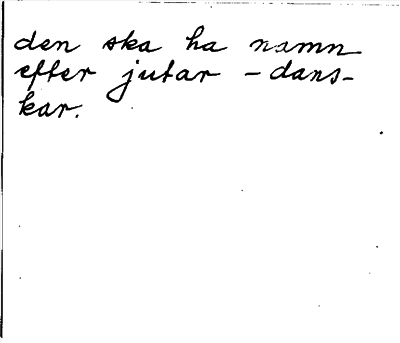 den ska ha namn
efter jutar - dans-
kar.